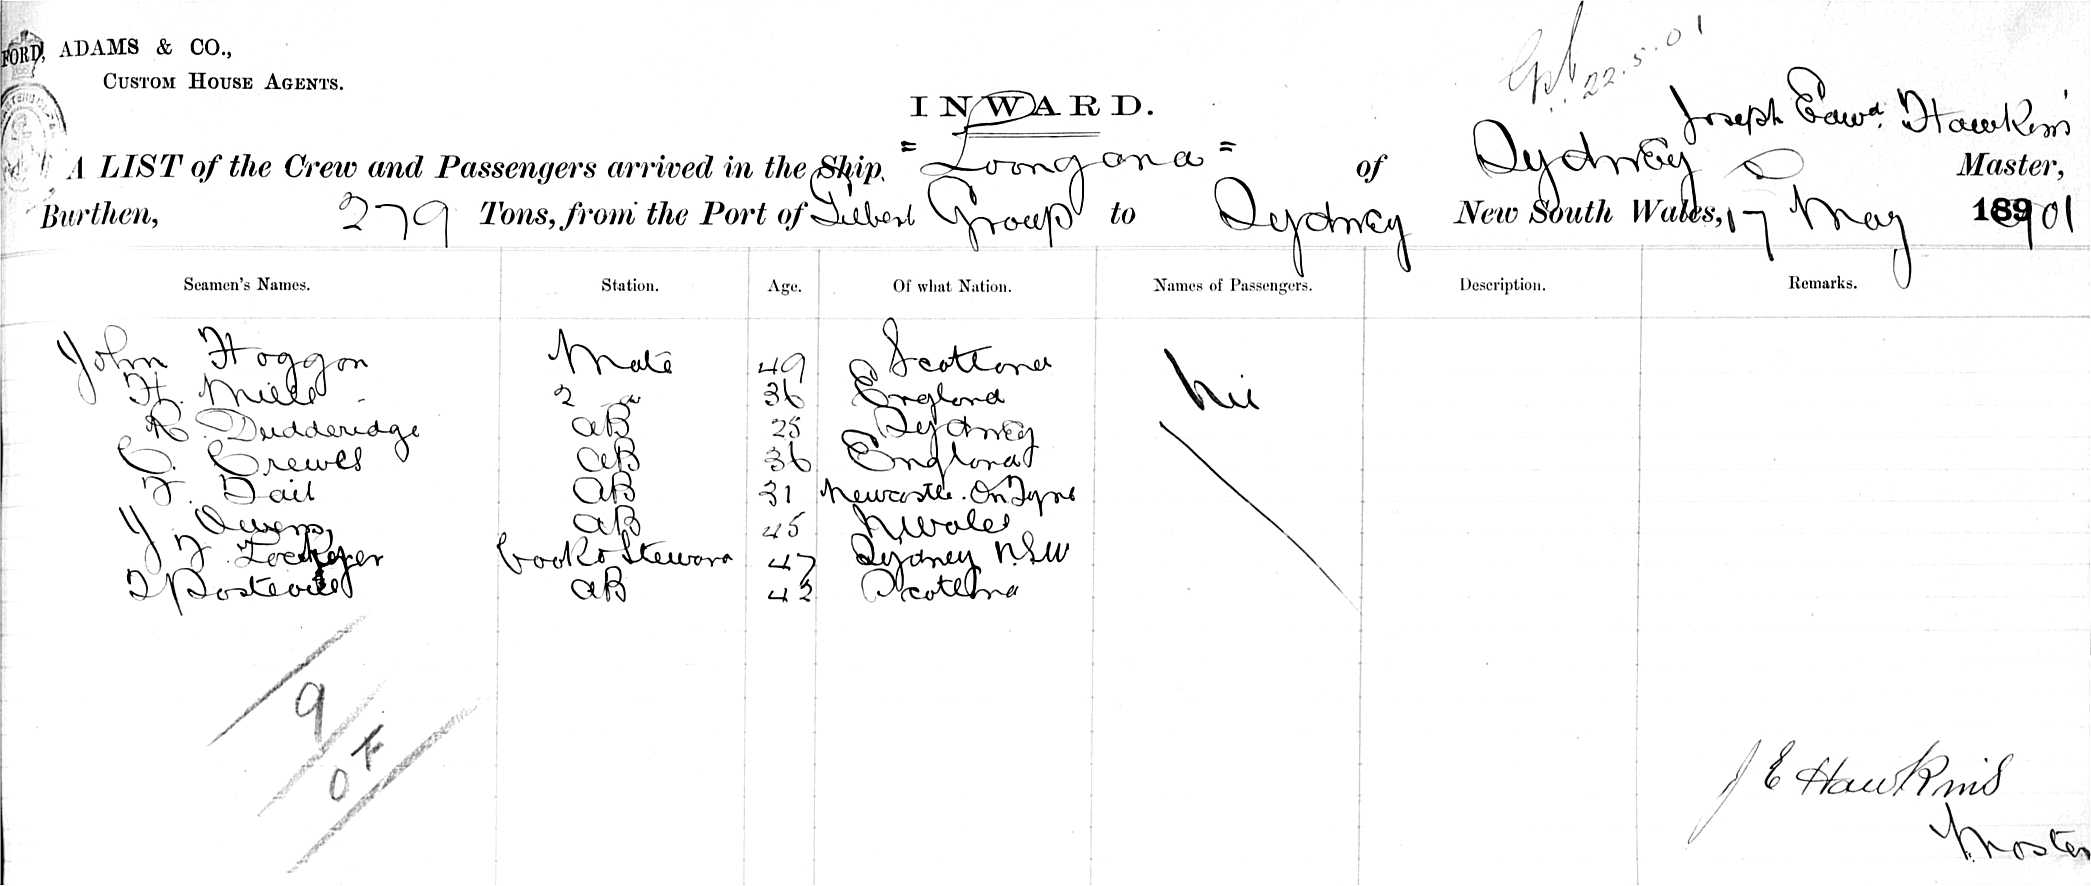 FORD, ADAMS & CO.,
CUSTOM HOUSE AGENTS.
22.5.01
INWARD.
Joseph Edwd. Hawkins
A LIST of the Crew and Passengers arrived in the Ship "Loongana" of Sydney Master,
Burthen, 279 Tons, from the Port of Gilbert Group to Sydney New South Wales, 17 May 18901
Seamen's Names. Station. Age. Of what Nation. Names of Passengers. Description. Remarks.
John Hoggan Mate 49 Scotland Nil
H. Mills 2 " 36 England
R. Dudderidge AB 25 Sydney
C. Crewes AB 36 England
F. Tait AB 31 Newcastle On Tyne
J. Owens AB 45 N Wales
J F Lockyer Cook & Steward 47 Sydney NSW
AB 42 Scotland
9
0 F
J E Hawkins
Master